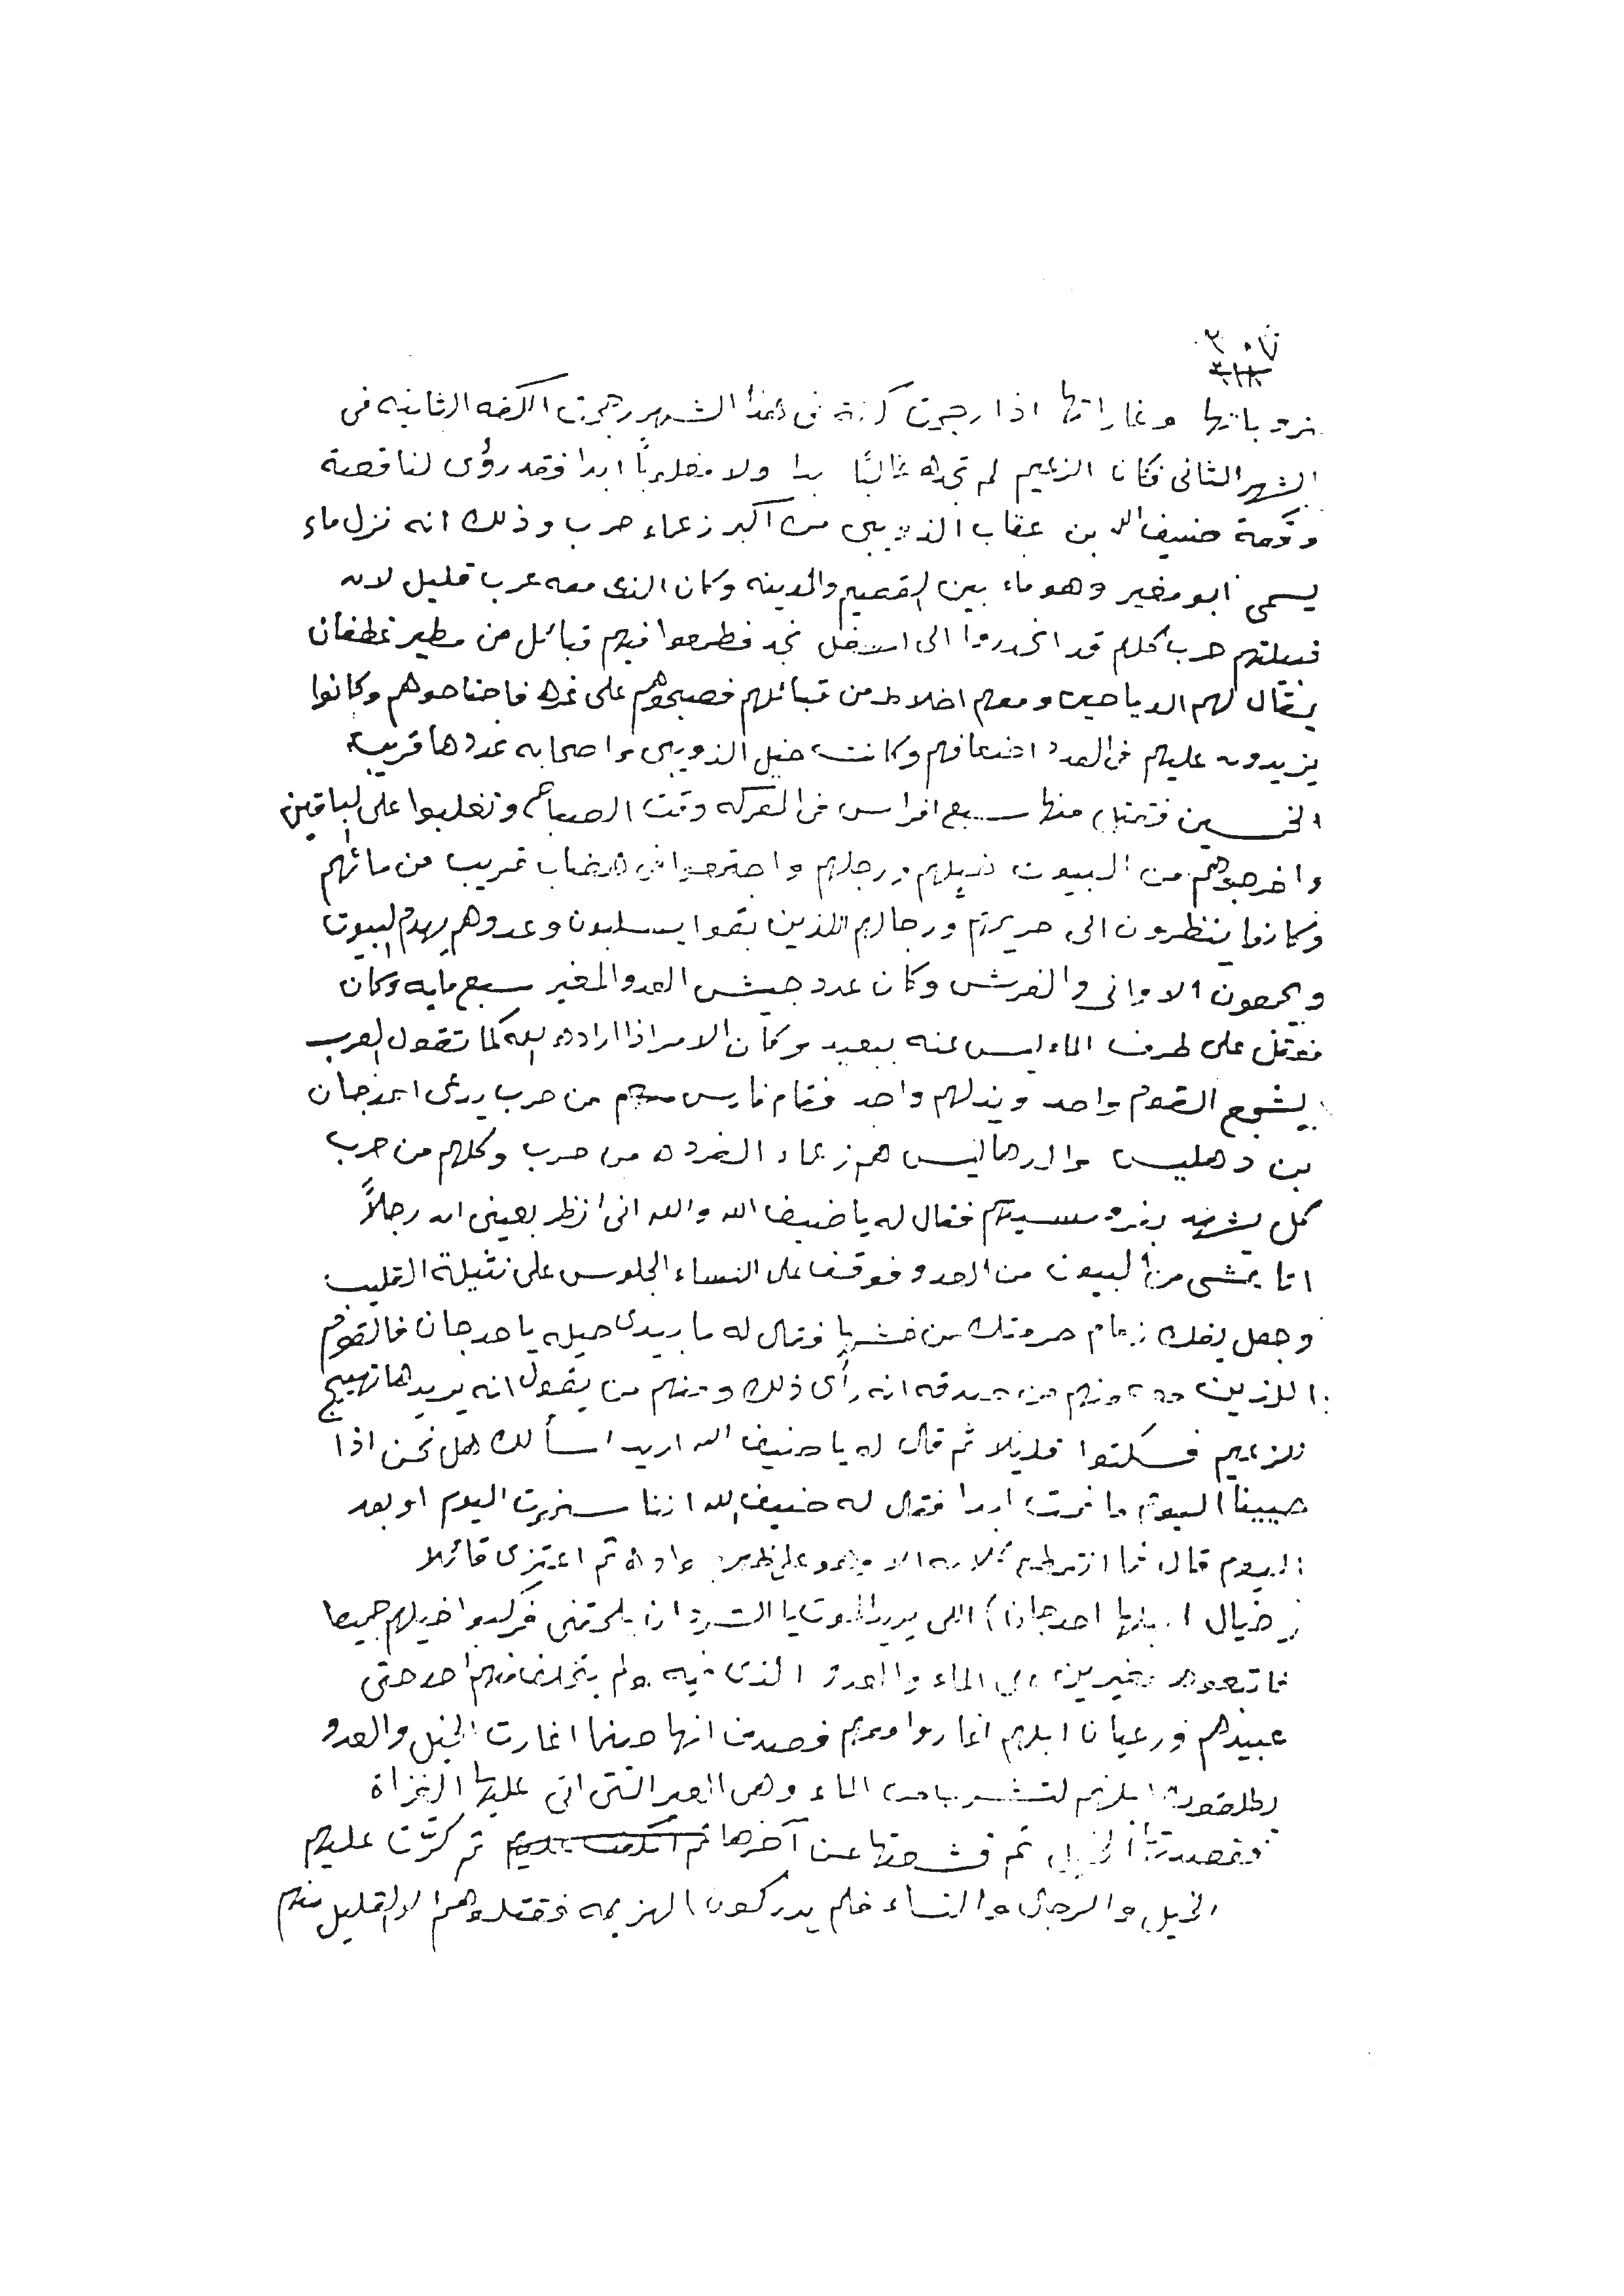 ٣٠٧
وغاراتها اذا رجحت كفة فى هذا الشهر رجحت الكفه الثانيه فى
الشهر الثانى فكان الزعيم لم تجده غالبًا بدا ولا مغلوبًا ابدا فقد رؤى لنا قصة
وقعة ضيف الله بن عقاب الذويبى من اكبر زعماء حرب وذلك انه نزل ماء
يسمى ابو مغير وهو ماء بين القصيم والمدينه وكان الذى معه عرب قليل لان
قبيلتهم حرب كلهم قد انحدروا الى اسفل نجد فطمعوا فيهم قبائل من مطير غطفان
يقال لهم الدياحين ومعهم اخلاط من قبائلهم فصبحوهم على غره فاجتاحوهم وكانوا
يزيدون عليهم فى العدد اضعافهم وكانت خيل الذويبى واصحابه عددها قريب
الخمسين فقتل منها سبع افراس فى المعركه وقت الصباح وتغلبوا على الباقين
واخرجوهم من البيوت خيلهم ورجلهم واجتمعوا فى هضاب قريب من مائهم
وكانوا ينظرون الى حريمهم ورجالهم اللذين بقوا يسلبون وعدوهم يهدم البيوت
ويجمعون الاوانى والفرش وكان عدد جيش العدو المغير سبع مايه وكان
معقل على طرف الماء ليس عنه ببعيد وكان الامر اذا اراده الله كما تقول العرب
يشجع القوم واحد ويذلهم واحد فقام فارس منهم من حرب يدعى احدجان
بن دهليس والدهاليس هم زعماء الفرده من حرب وكلهم من حرب
كل يشهد فقال له يا ضيف الله والله انى انظر بعينى ان رجلاً
اتا يمشى من البيوت من العدو فوقف على النساء الجلوس على نثيلة القليب
وجعل يفك زمام من خشمها فقال له ما بيدى حيله يا حدجان فالقوم
اللذين منهم من صدقه انه رأى ذلك ومنهم من يقول انه يريدها تهييج
للزعيم فسكتوا قليلا ثم قال له يا ضيف الله اريد اسألك هل نحن اذا
حيينا اليوم ما نموت ابدا فقال له ضيف الله اننا سنموت اليوم او بعد
اليوم قال فما كلامه الا وهو على ظهر جواده ثم اعتزى قائلا
خيال احدجان) اللى يريد الموت يا يلحقنى فركبوا خيلهم جميعا
فاتبعوه مغيرين على الماء والعدو الذى فيه ولم يتخلف منهم احد حتى
عبيدهم ورعيان ابلهم اغاروا معهم فصدف انها حينما اغارت الخيل والعدو
يطلقون ابلهم لتشرب من الماء وهى التى اتى عليها الغزاة
فقصدتها الخيل ثم عن آخرها ثم كرّت عليهم
الخيل والرجال والنساء فلم يدركون الهزيمه فقتلوهم الا القليل منهم